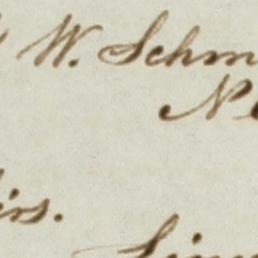 W. Schm
N
irs.
Sin